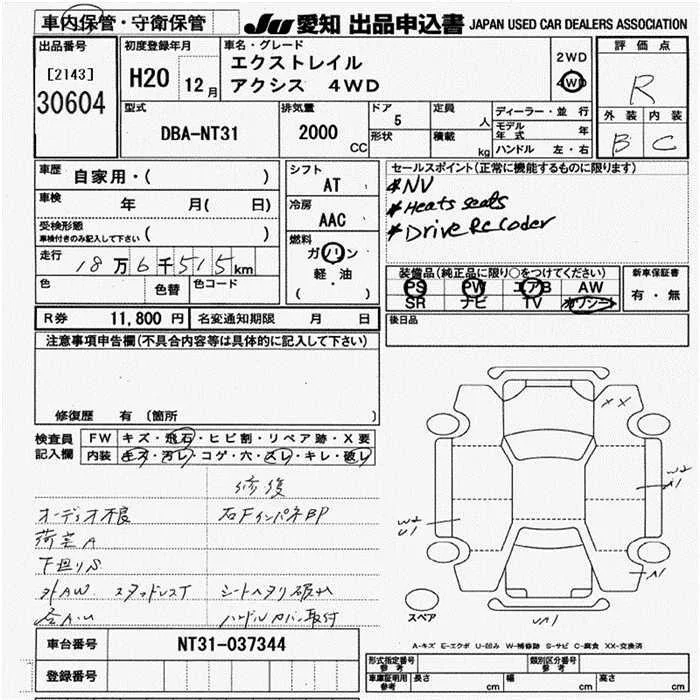 車内保管・守衛保管
JU 愛知 出品申込書 JAPAN USED CAR DEALERS ASSOCIATION
出品番号
[2143]
30604
初度登録年月
H20 12月
車名・グレード
エクストレイル
アクシス 4WD
2WD
4WD
評価点
R
外装 内装
B C
型式
DBA-NT31
排気量
2000 CC
ドア
5
形状
定員
人
積載
kg
ディーラー・並行
モデル年式 年
ハンドル 左・右
車歴
自家用・( )
車検
年 月( 日)
受検形態
車検付きのみ記入して下さい ( )
走行
18万6千515km
色
色替
色コード
シフト
AT
冷房
AAC
燃料
ガソリン
軽・油
( )
セールスポイント(正常に機能するものに限ります)
*NV
*Heats seats
*Drive Recoder
装備品(純正品に限り○をつけてください)
PS PW エアB AW
SR ナビ TV カワシート
新車保証書
有・無
R券 11,800 円
名変通知期限 月 日
後日品
注意事項申告欄(不具合内容等は具体的に記入して下さい)
修復歴 有 (箇所 )
検査員
記入欄
FW キズ・飛石・ヒビ割・リペア跡・X要
内装 キズ・汚レ・コゲ・穴・スレ・キレ・破レ
修復
オーディオ不良 右Fインパネ部
荷室A
下廻りS
外AW スタッドレスT シートヘタリ破レ
ハンドルカバー取付
XX
W2
A1
W2
U1
A1
UA1
スペア
車台番号 NT31-037344
登録番号
A-キズ E-エクボ U-凹み W-補修跡 S-サビ C-腐食 XX-交換済
形式指定番号
参考
類別区分番号
参考
車庫証明用
参考
長さ cm 幅 cm 高さ cm